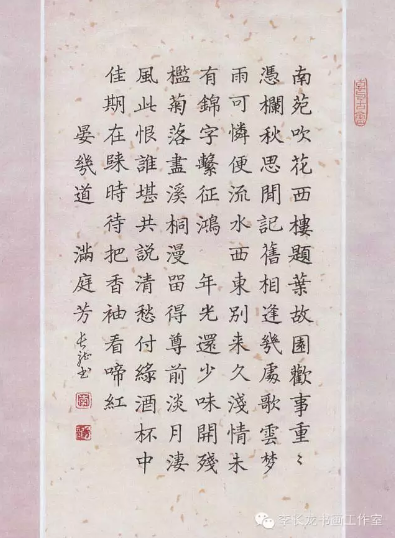 南苑吹花西樓題葉故園歡事重〻
憑欄秋思閒記舊相逢幾處歌雲梦
雨可憐便流水西東別来久淺情未
有錦字繫征鴻　年光還少味開殘
檻菊落盡溪桐漫留得尊前淡月凄
風此恨誰堪共説清愁付綠酒杯中
佳期在歸時待把香袖看啼紅
晏幾道　滿庭芳
长龙书
李长龙书画工作室